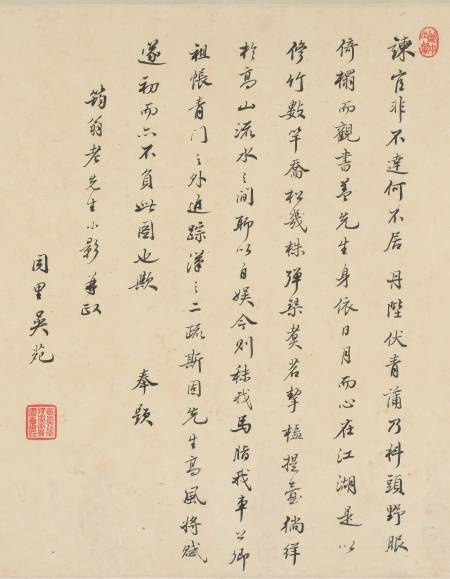 諫官非不達何不居丹陛伏青蒲乃科頭野服
倚榻而觀書蓋先生身依日月而心在江湖是以
修竹數竿喬松幾株彈琴煮茗挈榼提壺徜徉
於高山流水之間聊以自娛今則秣我馬脂我車公卿
祖帳青門之外追踪漢之二疏斯固先生高風將賦
遂初而亦不負此圖也歟 奉題
筠翁老先生小影 兼政
同里吳苑